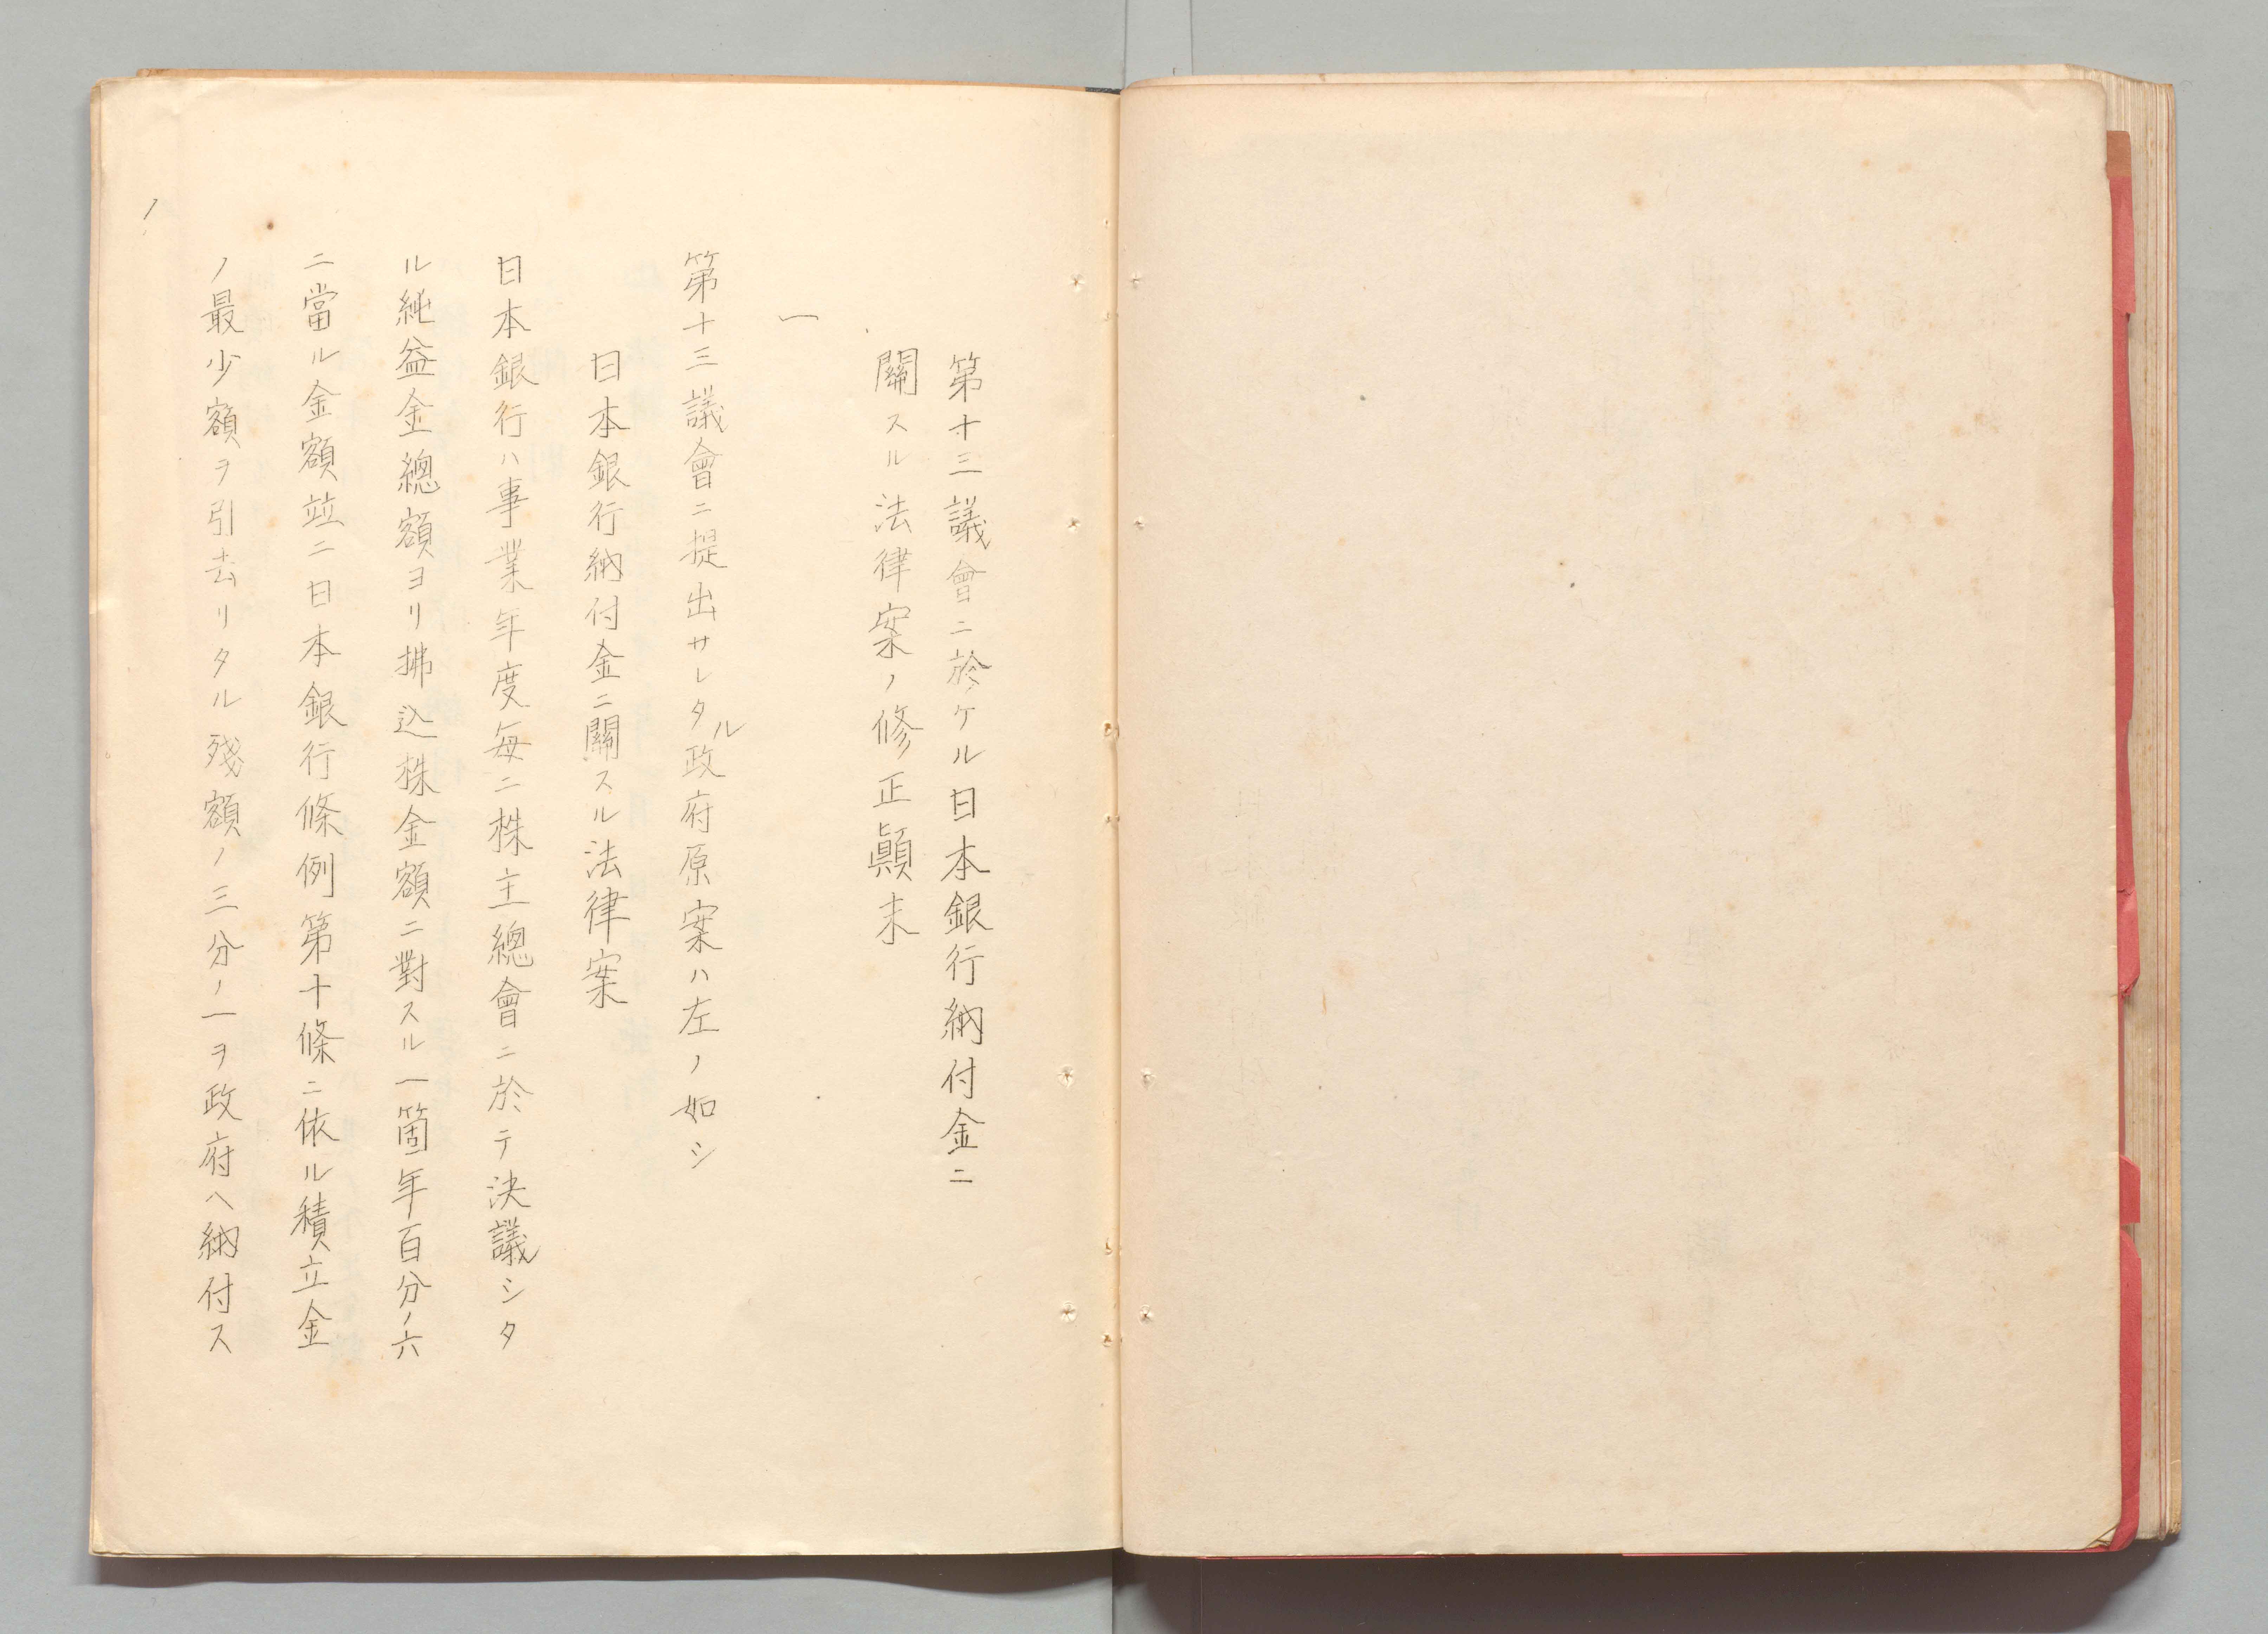 第十三議會ニ於ケル日本銀行納付金ニ
關スル法律案ノ修正顚末
一
第十三議會ニ提出サレタル政府原案ハ左ノ如シ
日本銀行納付金ニ關スル法律案
日本銀行ハ事業年度每ニ株主總會ニ於テ決議シタ
ル純益金總額ヨリ拂込株金額ニ對スル一箇年百分ノ六
ニ當ル金額竝ニ日本銀行條例第十條ニ依ル積立金
ノ最少額ヲ引去リタル殘額ノ三分ノ一ヲ政府ヘ納付ス